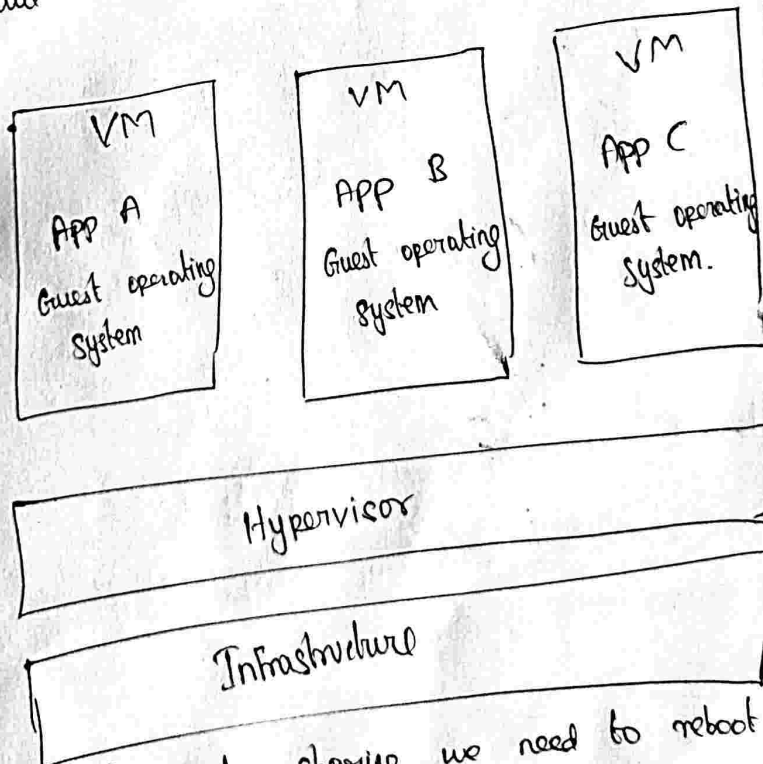 VM
App A
Guest operating
system
VM
App B
Guest operating
system
VM
App C
Guest operating
system.
Hypervisor
Infrastructure
we need to reboot